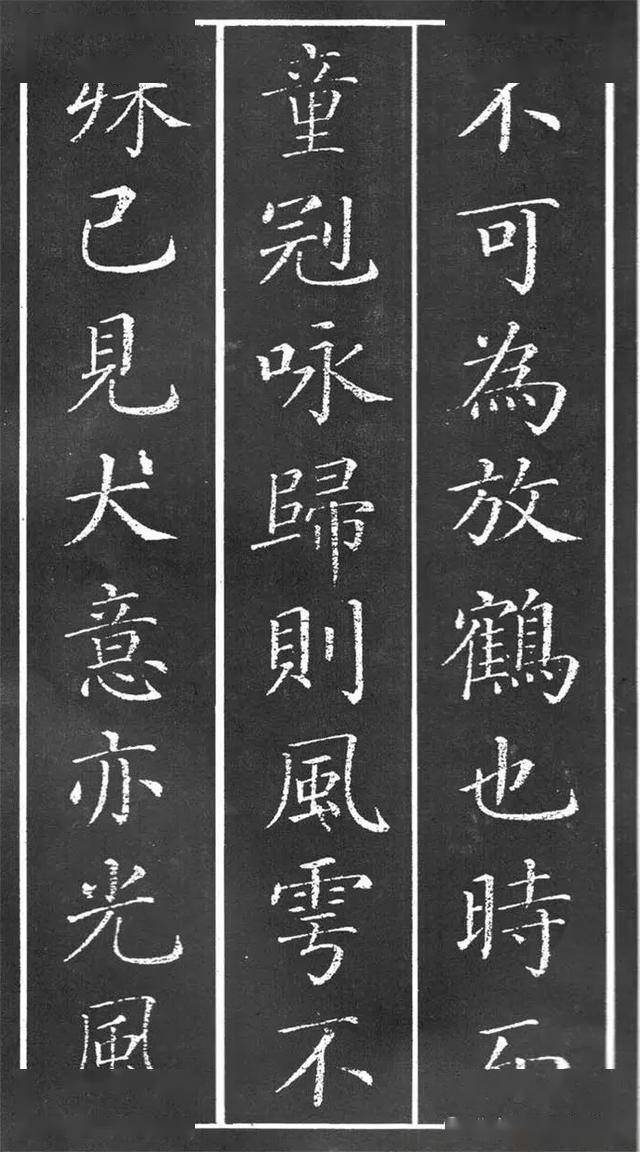 不可為放鶴也時而
童冠咏歸則風雩不
殊已見犬意亦光風